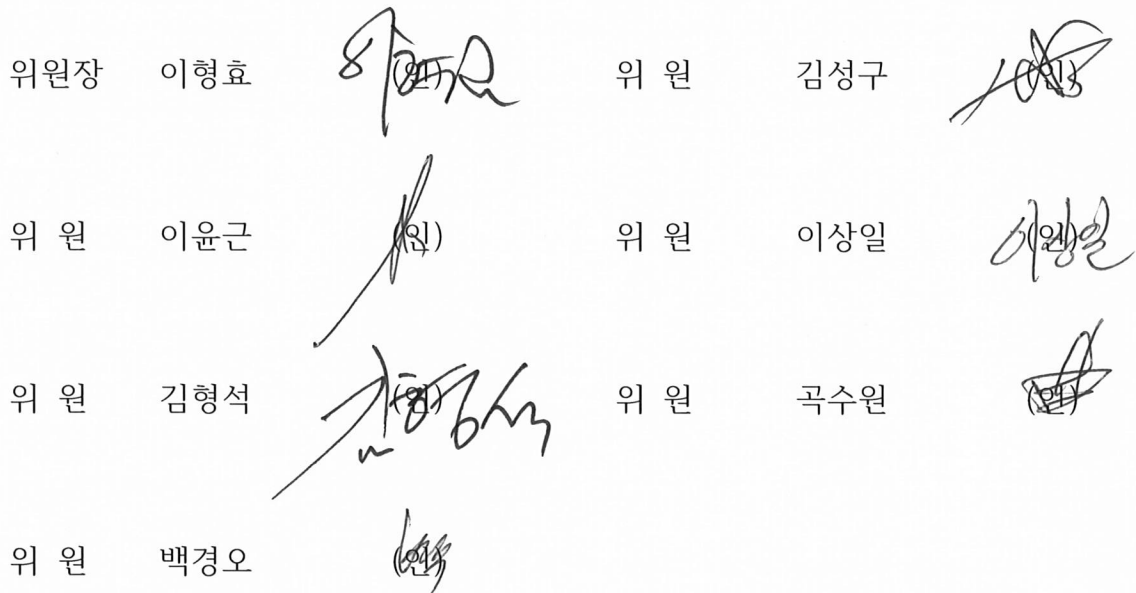 위원장 이형효 (인) 위 원 김성구 (인)
위 원 이윤근 (인) 위 원 이상일 (인)
위 원 김형석 (인) 위 원 곡수원 (인)
위 원 백경오 (인)